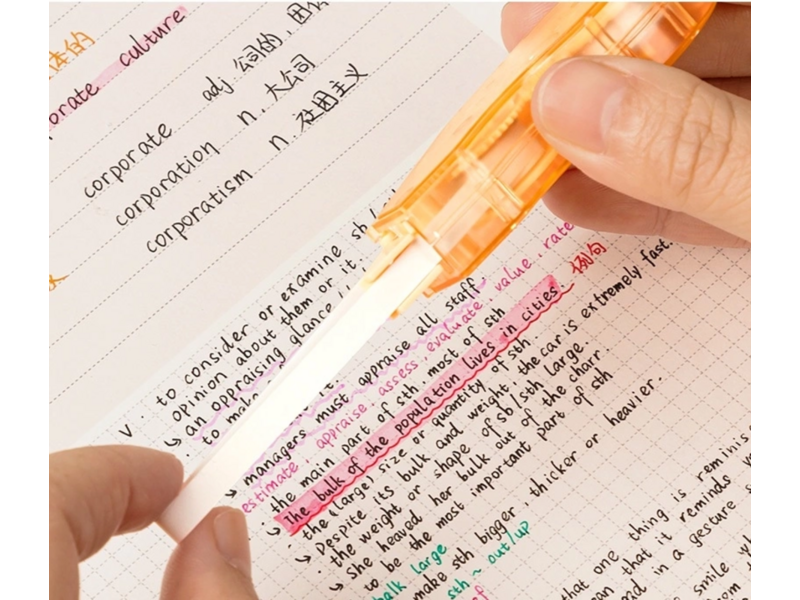 culture
corporate adj 公司的,
corporation n. 大公司
corporatism n 社团主义
v. to consider or examine
opinion about them or it.
an oppraising glance
to
managers must appraise all staff
estimate appraise. assess. evaluate. value. rate
the main part of sth. most of sth
The bulk of the population lives in cities. 例句
the (large) size or quantity of sth
Despite its bulk and weight, the car is extremely fast.
the weight or shape of sb/sth large.
She heaved her bulk out of the charr.
to be the most important part of sth
make sth bigger, thicker or heavier.
bulk large
sth ~ out/up
that one thing is
that it reminds
in a gesture
smile